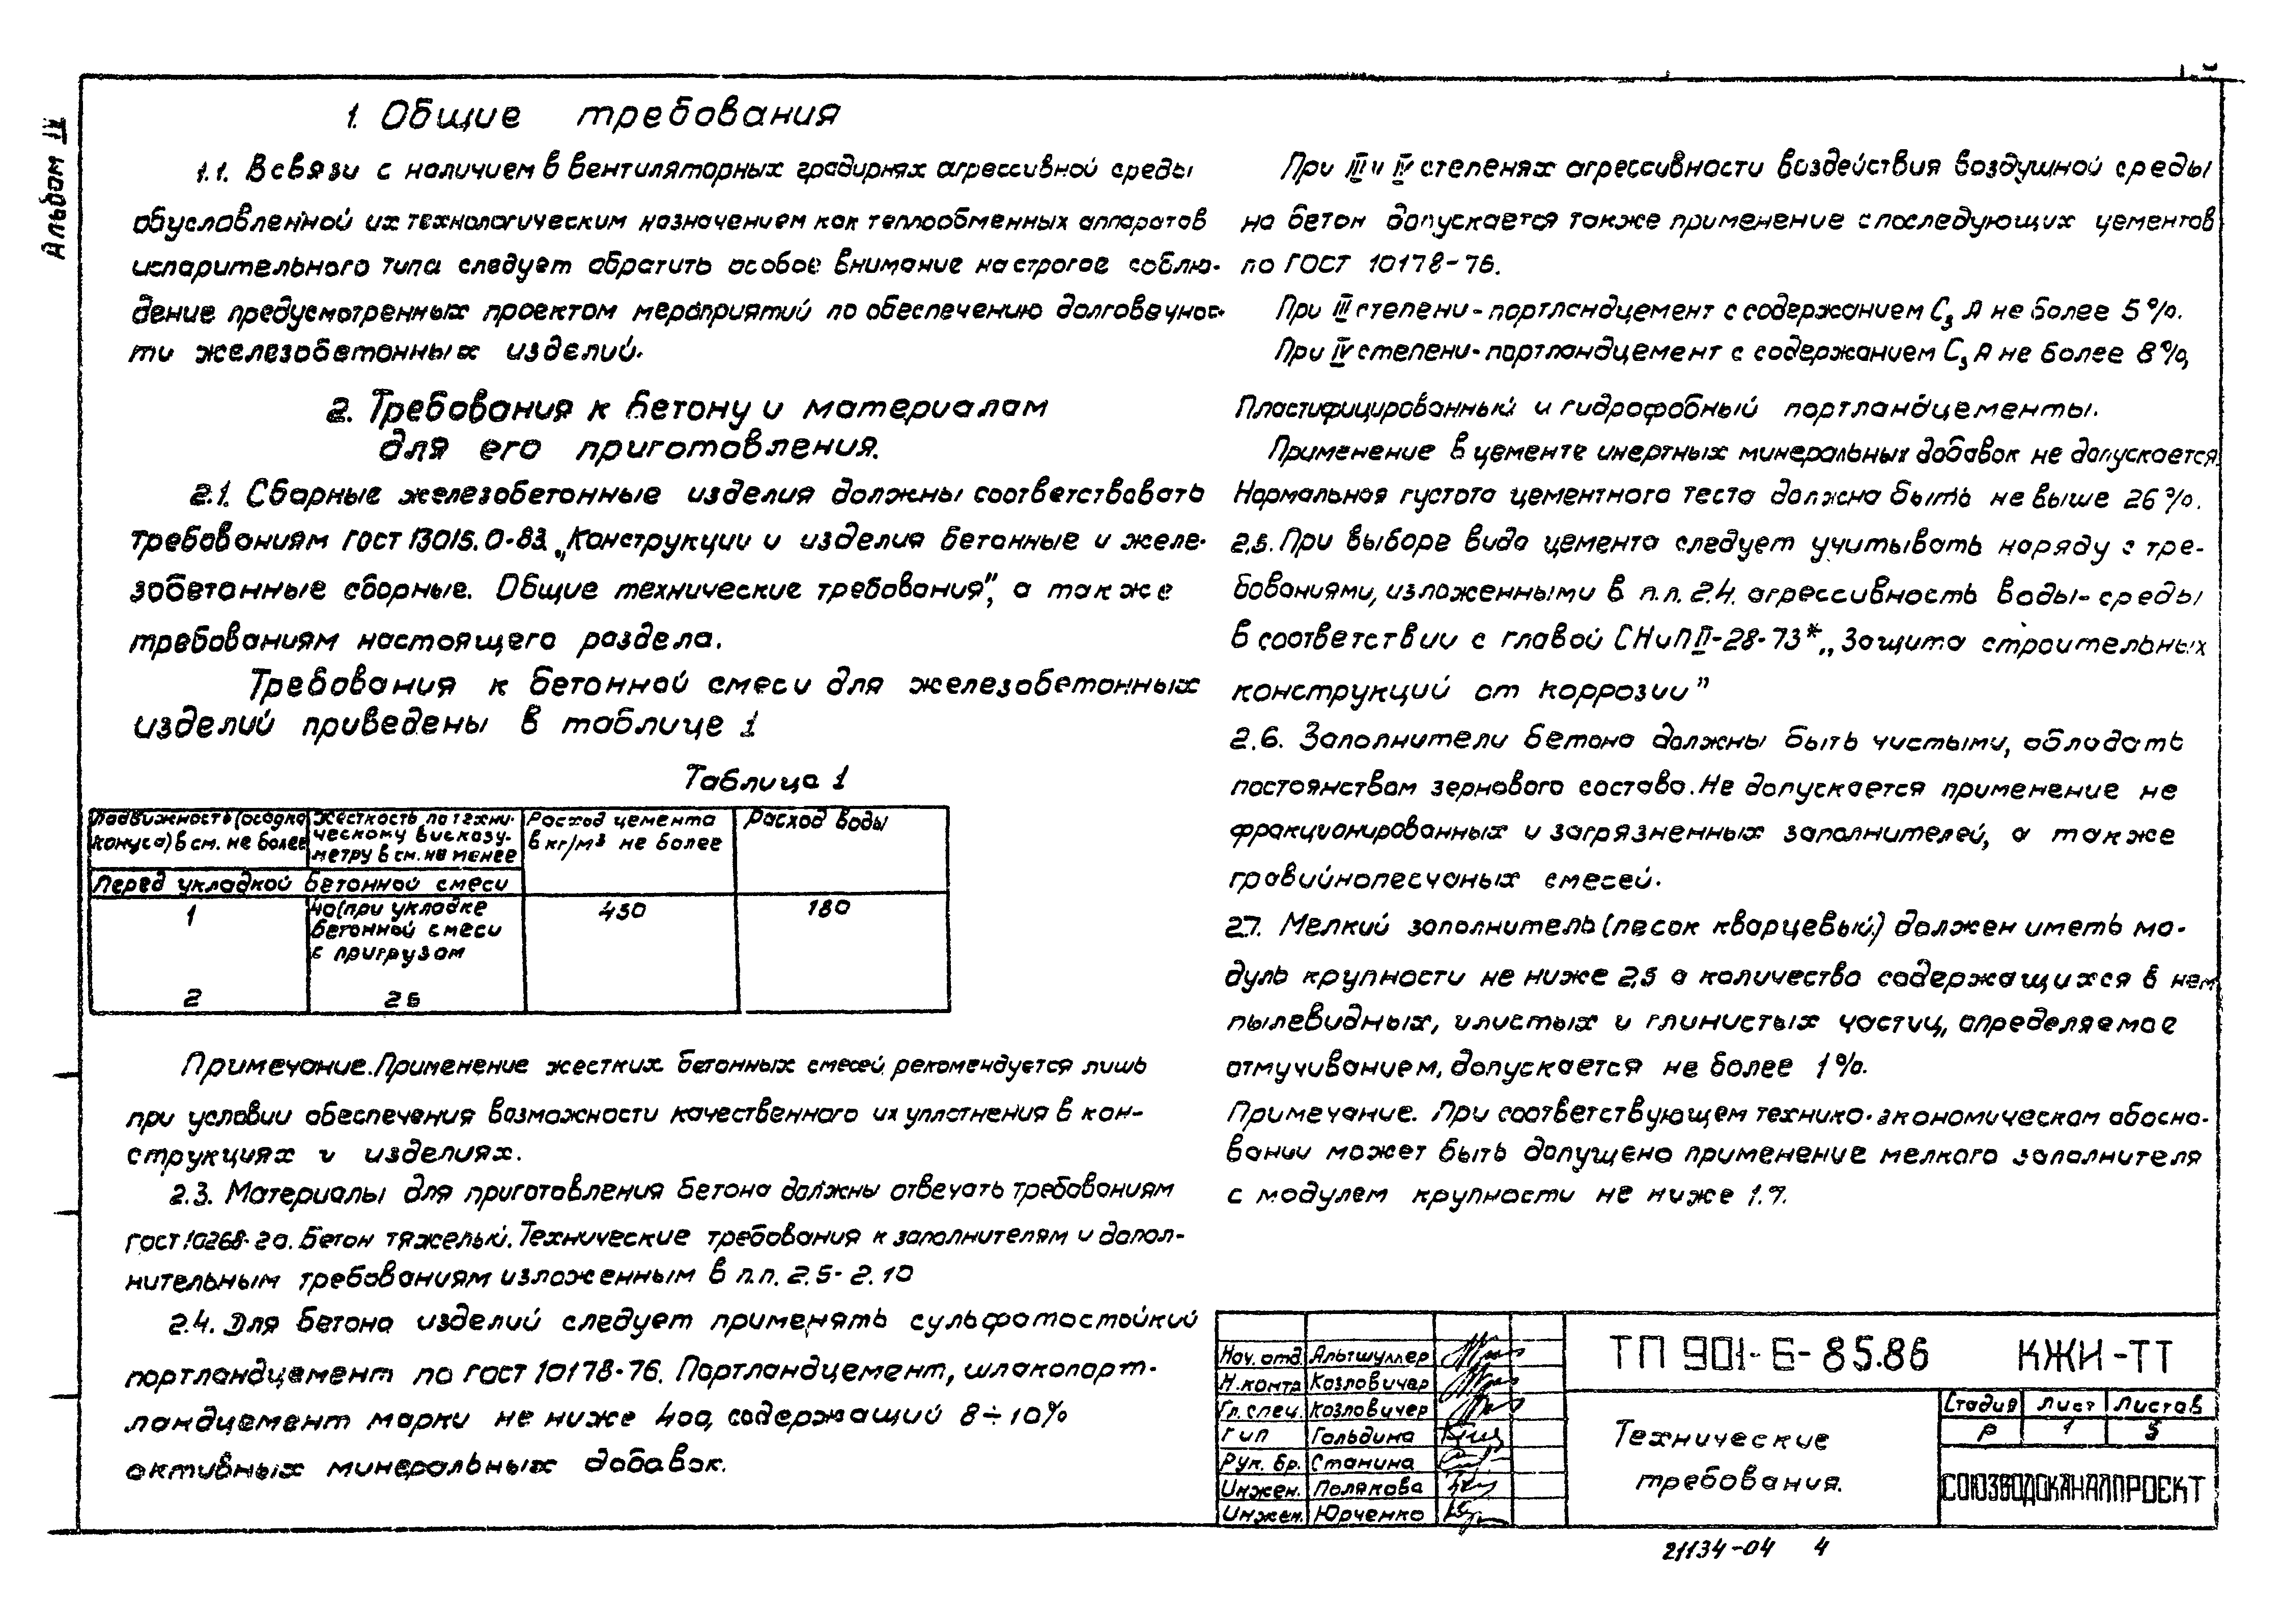 Альбом IV
1. Общие требования
1.1. В связи с наличием в вентиляторных градирнях агрессивной среды
обусловленной их технологическим назначением как теплообменных аппаратов
испарительного типа следует обратить особое внимание на строгое соблю-
дение предусмотренных проектом мероприятий по обеспечению долговечнос-
ти железобетонных изделий.
2. Требования к бетону и материалам
для его приготовления.
2.1. Сборные железобетонные изделия должны соответствовать
требованиям ГОСТ 13015.0-83 „Конструкции и изделия бетонные и желе-
зобетонные сборные. Общие технические требования", а также
требованиям настоящего раздела.
Требования к бетонной смеси для железобетонных
изделий приведены в таблице 1
Таблица 1
Подвижность (осадка
конуса) в см. не более
Жесткость по техни-
ческому вискози-
метру в см. не менее
Расход цемента
в кг/м³ не более
Расход воды
Перед укладкой бетонной смеси
1
40 (при укладке
бетонной смеси
с пригрузом
450
180
2
25
Примечание. Применение жестких бетонных смесей рекомендуется лишь
при условии обеспечения возможности качественного их уплотнения в кон-
струкциях и изделиях.
2.3. Материалы для приготовления бетона должны отвечать требованиям
ГОСТ 10268-80. Бетон тяжелый. Технические требования к заполнителям и допол-
нительным требованиям изложенным в п.п. 2.5-2.10
2.4. Для бетона изделий следует применять сульфатостойкий
портландцемент по ГОСТ 10178-76. Портландцемент, шлакопорт-
ландцемент марки не ниже 400, содержащий 8÷10%
активных минеральных добавок.
При III и IV степенях агрессивности воздействия воздушной среды
на бетон допускается также применение с последующих цементов
по ГОСТ 10178-76.
При III степени - портландцемент с содержанием С₃ А не более 5%.
При IV степени - портландцемент с содержанием С₃ А не более 8%,
Пластифицированный и гидрофобный портландцементы.
Применение в цементе инертных минеральных добавок не допускается.
Нормальная густота цементного теста должна быть не выше 26%.
2.5. При выборе вида цемента следует учитывать наряду с тре-
бованиями, изложенными в п.п. 2.4. агрессивность воды-среды
в соответствии с главой СНиП II-28-73* „Защита строительных
конструкций от коррозии"
2.6. Заполнители бетона должны быть чистыми, обладать
постоянством зернового состава. Не допускается применение не
фракционированных и загрязненных заполнителей, а также
гравийнопесчаных смесей.
2.7. Мелкий заполнитель (песок кварцевый) должен иметь мо-
дуль крупности не ниже 2,5 а количество содержащихся в нем
пылевидных, илистых и глинистых частиц, определяемое
отмучиванием, допускается не более 1%.
Примечание. При соответствующем технико-экономическом обосно-
вании может быть допущено применение мелкого заполнителя
с модулем крупности не ниже 1.7.
Нач. отд. Альтшуллер
Н. контр Козловичер
Гл. спец. Козловичер
ГИП Гольдина
Рук. бр. Станина
Инжен. Полякова
Инжен. Юрченко
ТП 901-6-85.86 КЖИ-ТТ
Технические
требования.
Стадия Лист Листов
Р 1 5
СОЮЗВОДОКАНАЛПРОЕКТ
21134-04 4